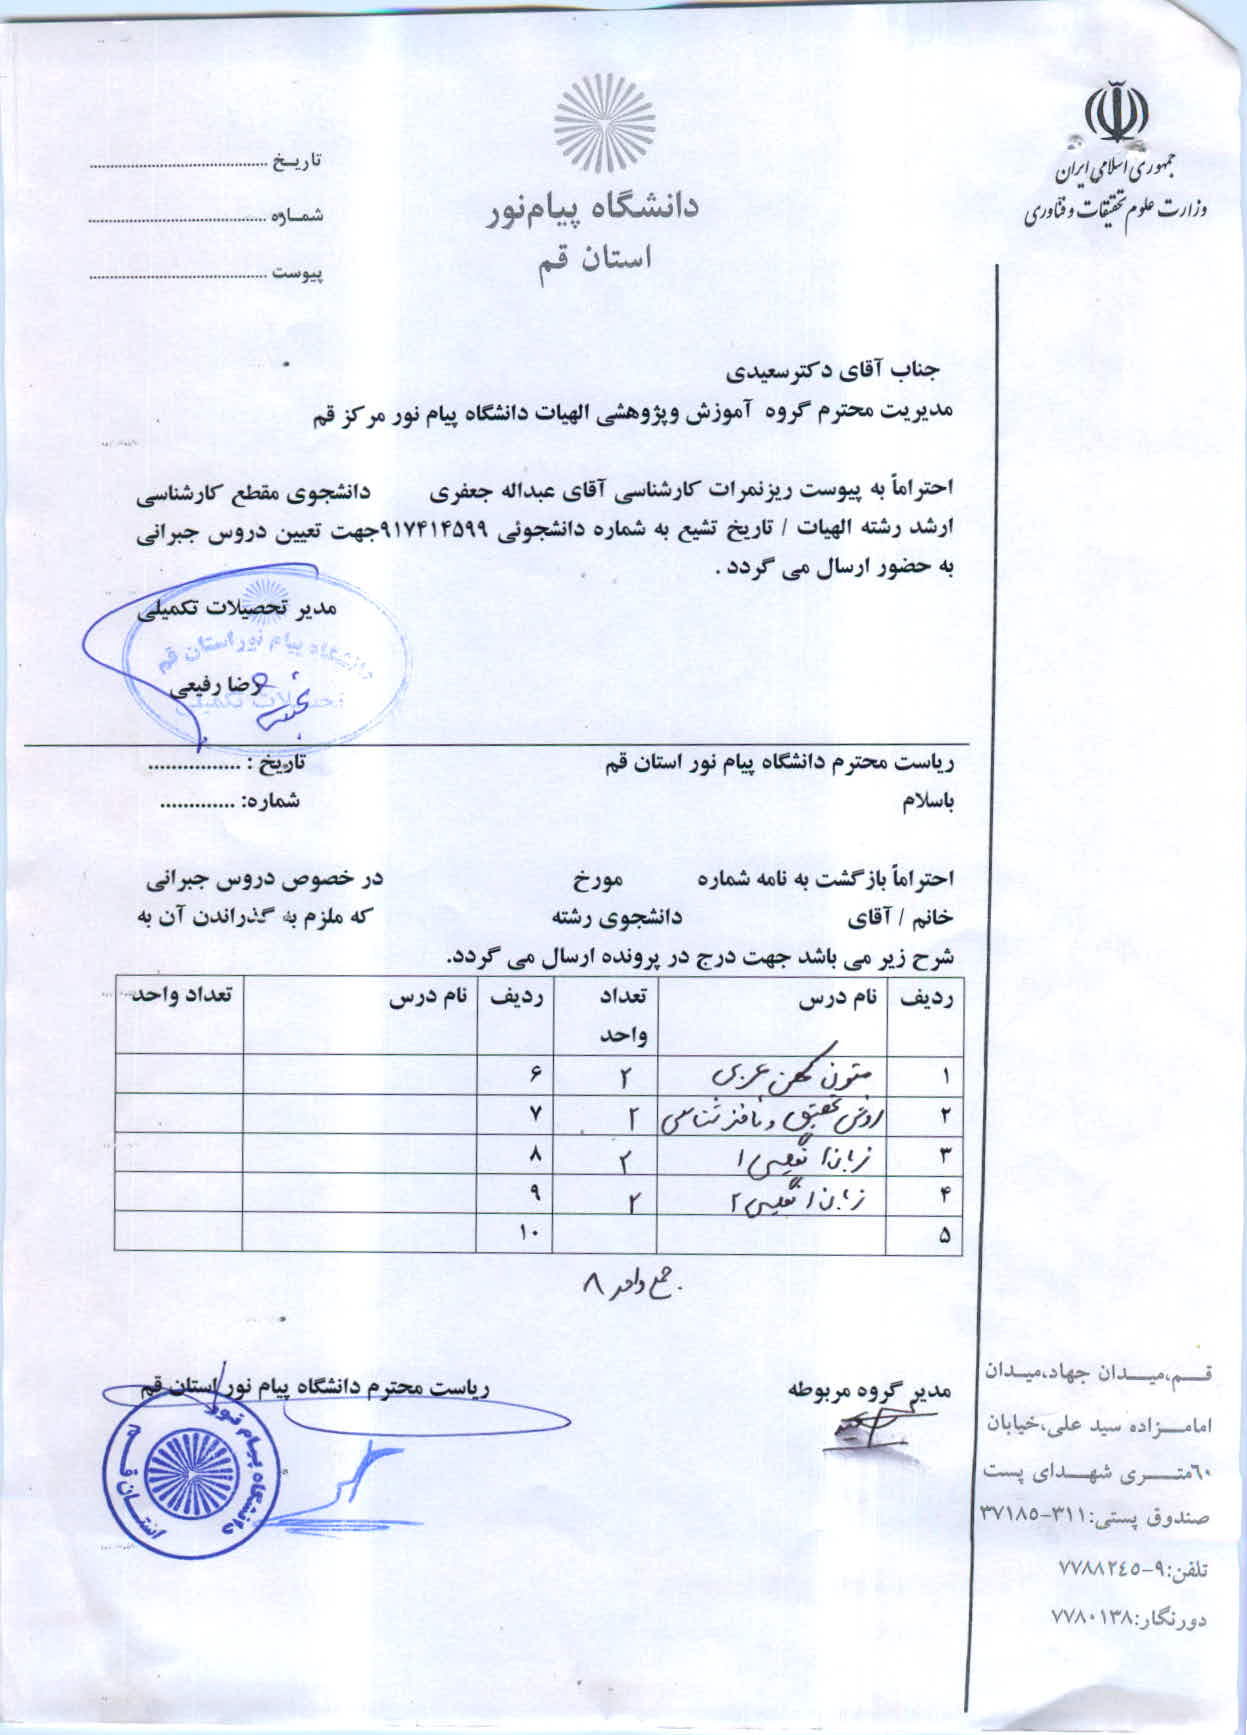 جمهوری اسلامی ایران
وزارت علوم تحقیقات و فناوری
دانشگاه پیام‌نور
استان قم
تاریـخ ..........................................
شمـاره ..........................................
پیوست ..........................................
جناب آقای دکترسعیدی
مدیریت محترم گروه آموزش وپژوهشی الهیات دانشگاه پیام نور مرکز قم
احتراماً به پیوست ریزنمرات کارشناسی آقای عبداله جعفری دانشجوی مقطع کارشناسی
ارشد رشته الهیات / تاریخ تشیع به شماره دانشجوئی ۹۱۷۴۱۴۵۹۹جهت تعیین دروس جبرانی
به حضور ارسال می گردد .
مدیر تحصیلات تکمیلی
دانشگاه پیام نور استان قم
رضا رفیعی
تحصیلات تکمیلی
ریاست محترم دانشگاه پیام نور استان قم تاریخ : ................
باسلام شماره: .............
احتراماً بازگشت به نامه شماره مورخ در خصوص دروس جبرانی
خانم / آقای دانشجوی رشته که ملزم به گذراندن آن به
شرح زیر می باشد جهت درج در پرونده ارسال می گردد.
ردیف نام درس تعداد واحد ردیف نام درس تعداد واحد
۱ متون کهن عربی ۲ ۶
۲ روش تحقیق و مأخذ شناسی ۲ ۷
۳ زبان انگلیسی ۱ ۲ ۸
۴ زبان انگلیسی ۲ ۲ ۹
۵ ۱۰
جمع واحد ۸
مدیر گروه مربوطه ریاست محترم دانشگاه پیام نور استان قم
دانشگاه پیام نور
استان قم
قـــم،میــدان جهاد،میـدان
امامــزاده سید علی،خیابان
٦٠متـــری شهــدای پست
صندوق پستی:۳۱۱-۳۷۱۸٥
تلفن:۹-۷۷۸۸۲٤٥
دورنگار:۷۷۸۰۱۳۸